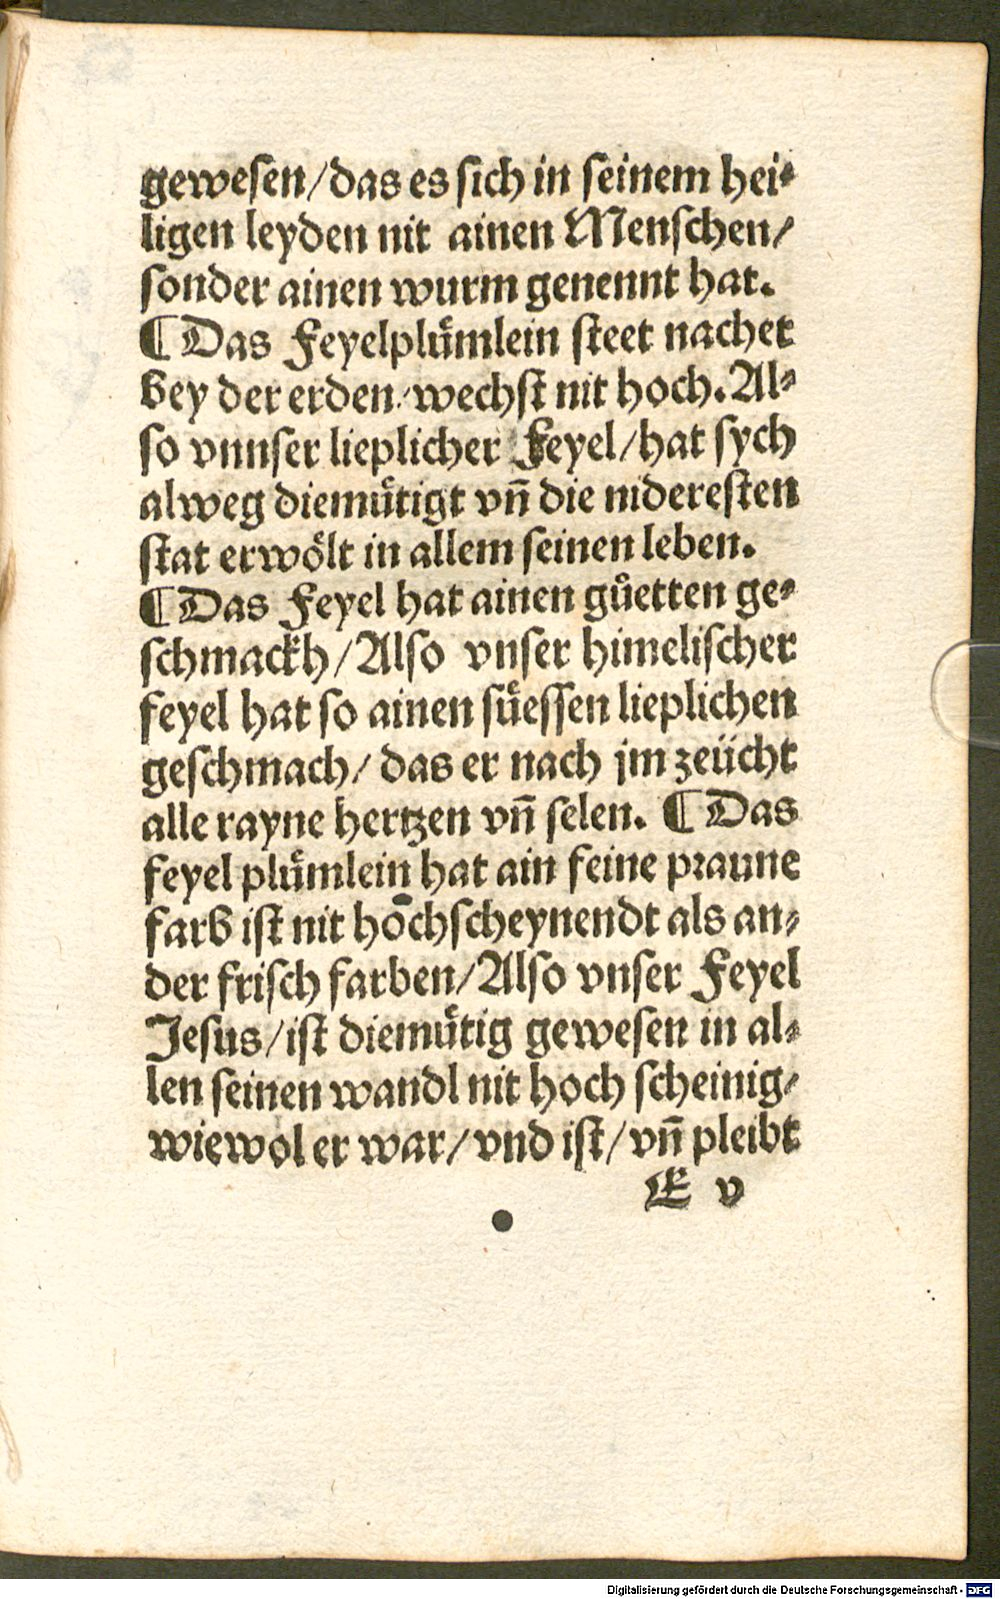 gewesen/das es sich in seinem hei⸗
ligen leyden nit ainen Menschen/
sonder ainen wurm genennt hat.
¶Das Feyelpluͤmlein steet nachet
bey der erden/wechst nit hoch. Al⸗
so vnnser lieplicher Feyel/hat sych
alweg diemuͤtigt vñ die nideresten
stat erwoͤlt in allem seinen leben.
¶Das Feyel hat ainen guͦetten ge⸗
schmackh/Also vnser himelischer
feyel hat so ainen suͤessen lieplichen
geschmach/ das er nach jm zeücht
alle rayne hertzen vñ selen. ¶Das
feyel pluͤmlein hat ain feine praune
farb ist nit hochscheynendt als an⸗
der frisch farben/Also vnser Feyel
Jesus/ist diemuͤtig gewesen in al⸗
len seinen wandl nit hoch scheinig/
wiewol er war/vnd ist/vñ pleibt
E v
Digitalisierung gefördert durch die Deutsche Forschungsgemeinschaft - DFG